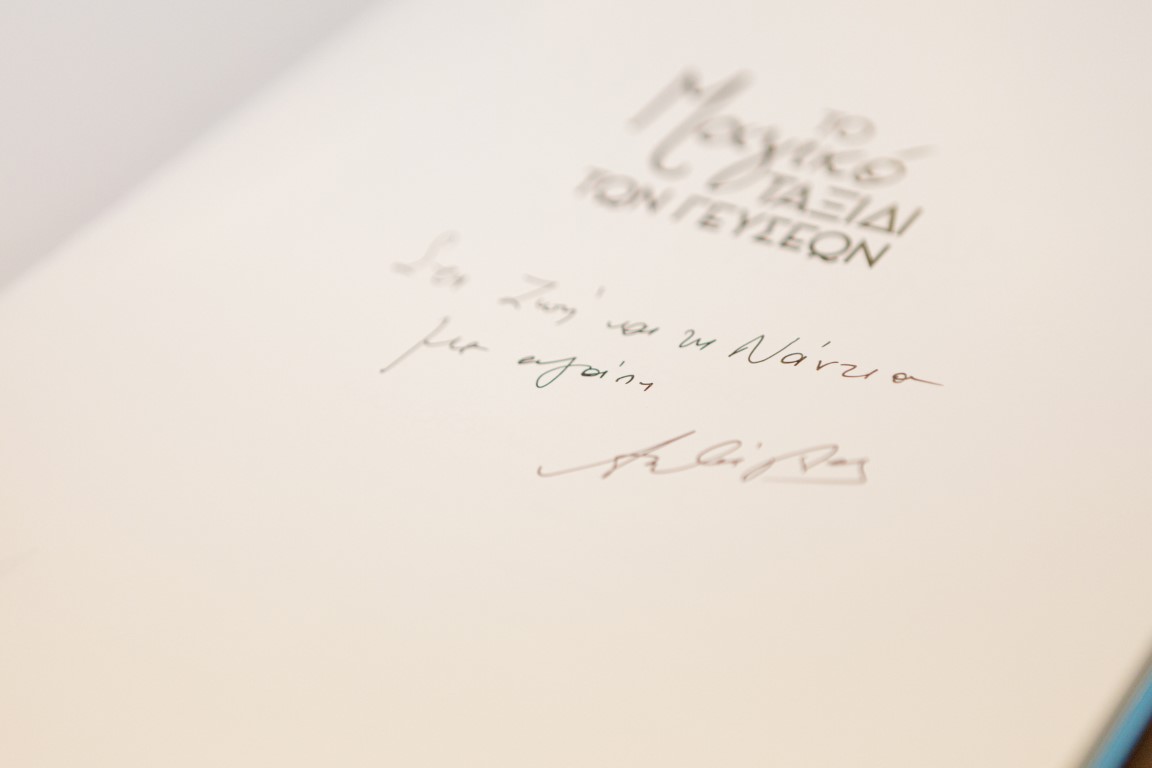 ΤΟ
Μαγικό
ΤΑΞΙΔΙ
ΤΩΝ ΓΕΥΣΕΩΝ
Στη Ζωή και τη Νάντια
με αγάπη